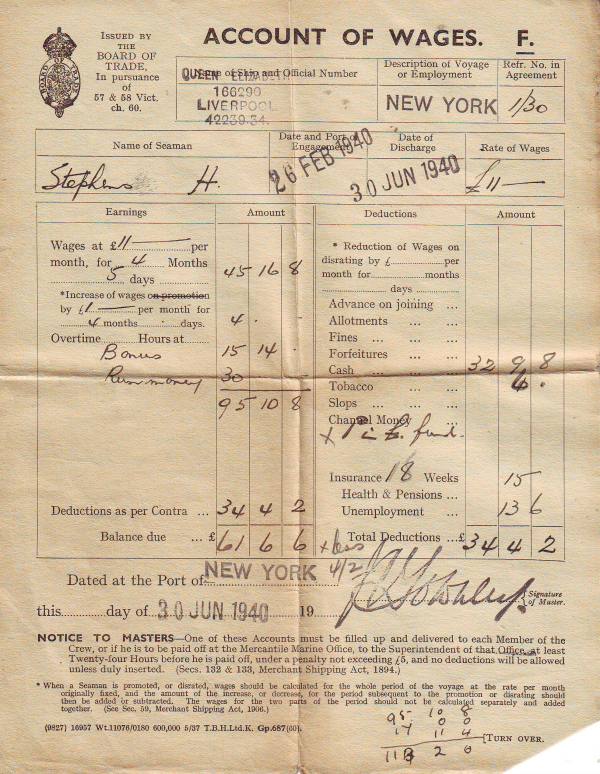 ISSUED BY
THE
BOARD OF
TRADE,
In pursuance
of
57 & 58 Vict.
ch. 60.
BOARD OF TRADE
ACCOUNT OF WAGES. F.
Name of Ship and Official Number
QUEEN ELIZABETH
166290
LIVERPOOL
42239.34.
Description of Voyage
or Employment
NEW YORK
Refr. No. in
Agreement
1/30
Name of Seaman
Stephens H.
Date and Port of
Engagement
26 FEB 1940
Date of
Discharge
30 JUN 1940
Rate of Wages
£11 —
Earnings Amount
Wages at £11 — per
month, for 4 Months
5 days 45 16 8
*Increase of wages on promotion
by £1 — per month for
4 months - days. 4 . -
Overtime Hours at
Bonus 15 14 -
Rum money 30 -
95 10 8
Deductions as per Contra ... 34 4 2
Balance due ... £ 61 6 6
Deductions Amount
* Reduction of Wages on
disrating by £ per
month for months
days
Advance on joining ...
Allotments ... ...
Fines ... ... ...
Forfeitures ... ...
Cash ... ... ... 32 9 8
Tobacco ... ... 6 .
Slops ... ... ...
Channel Money ...
fund.
Insurance 18 Weeks 15
Health & Pensions ...
Unemployment ... 13 6
Total Deductions ...£ 34 4 2
x less
4/2
Dated at the Port of NEW YORK
this day of 30 JUN 1940 19
Signature
of Master.
NOTICE TO MASTERS—One of these Accounts must be filled up and delivered to each Member of the
Crew, or if he is to be paid off at the Mercantile Marine Office, to the Superintendent of that Office, at least
Twenty-four Hours before he is paid off, under a penalty not exceeding £5, and no deductions will be allowed
unless duly inserted. (Secs. 132 & 133, Merchant Shipping Act, 1894.)
* When a Seaman is promoted, or disrated, wages should be calculated for the whole period of the voyage at the rate per month
originally fixed, and the amount of the increase, or decrease, for the period subsequent to the promotion or disrating should
then be added or subtracted. The wages for the two parts of the period should not be calculated separately and added
together. (See Sec. 59, Merchant Shipping Act, 1906.)
(9827) 16957 Wt.11076/0180 600,000 5/37 T.B.H.Ltd.K. Gp.687(60).
95 10 8
14 0 0
11 4
113 2 0
[TURN OVER.